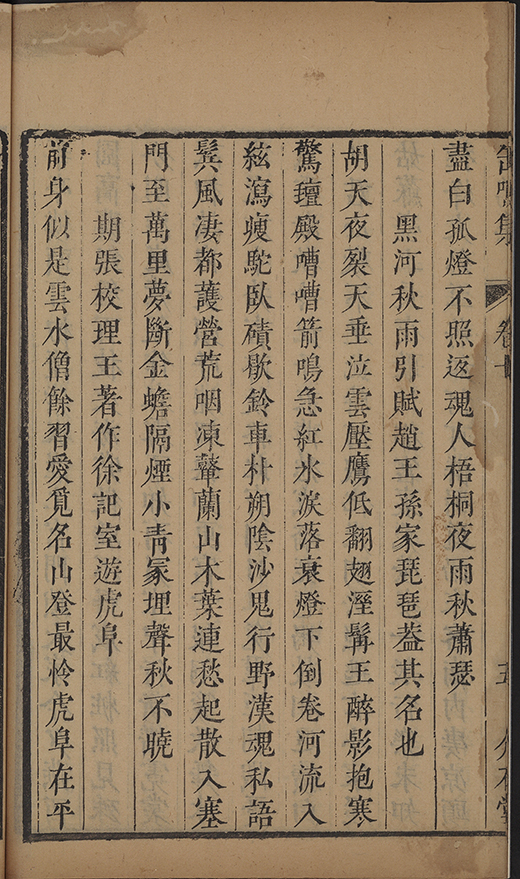 盡白孤燈不照返魂人梧桐夜雨秋蕭瑟
黑河秋雨引賦趙王孫家琵琶葢其名也
胡天夜裂天垂泣雲壓鷹低翻翅溼髯王醉影抱寒
驚璮殿嘈嘈箭鳴急紅水淚落衰燈下倒卷河流入
絃瀉瘦駝臥磧歇鈴車朴朔陰沙鬼行野漢魂私語
鬂風凄都䕶營荒咽凍鼙蘭山木葉連愁起散入塞
門至萬里夢斷金蟾隔煙小靑冢埋聲秋不曉
期張校理王著作徐記室遊虎阜
前身似是雲水僧餘習愛覓名山登最怜虎阜在平